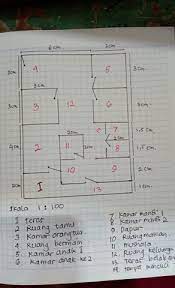 6cm 2cm
4 5
3cm
3 12 6
2 11 7
8
10 9
1 13
1,5cm
1,5cm
2cm
4cm
Skala 1 : 100
1 Teras
2 Ruang tamu
3 Kamar orangtua
4 Ruang bermain
5 Kamar anak 1
6 Kamar anak ke2
7 Kamar mandi 1
8 Kamar mandi 2
9 Dapur
10 Ruang makan
11 Mushola
12 Ruang keluarga
13 Teras belakang
14 tempat mencuci